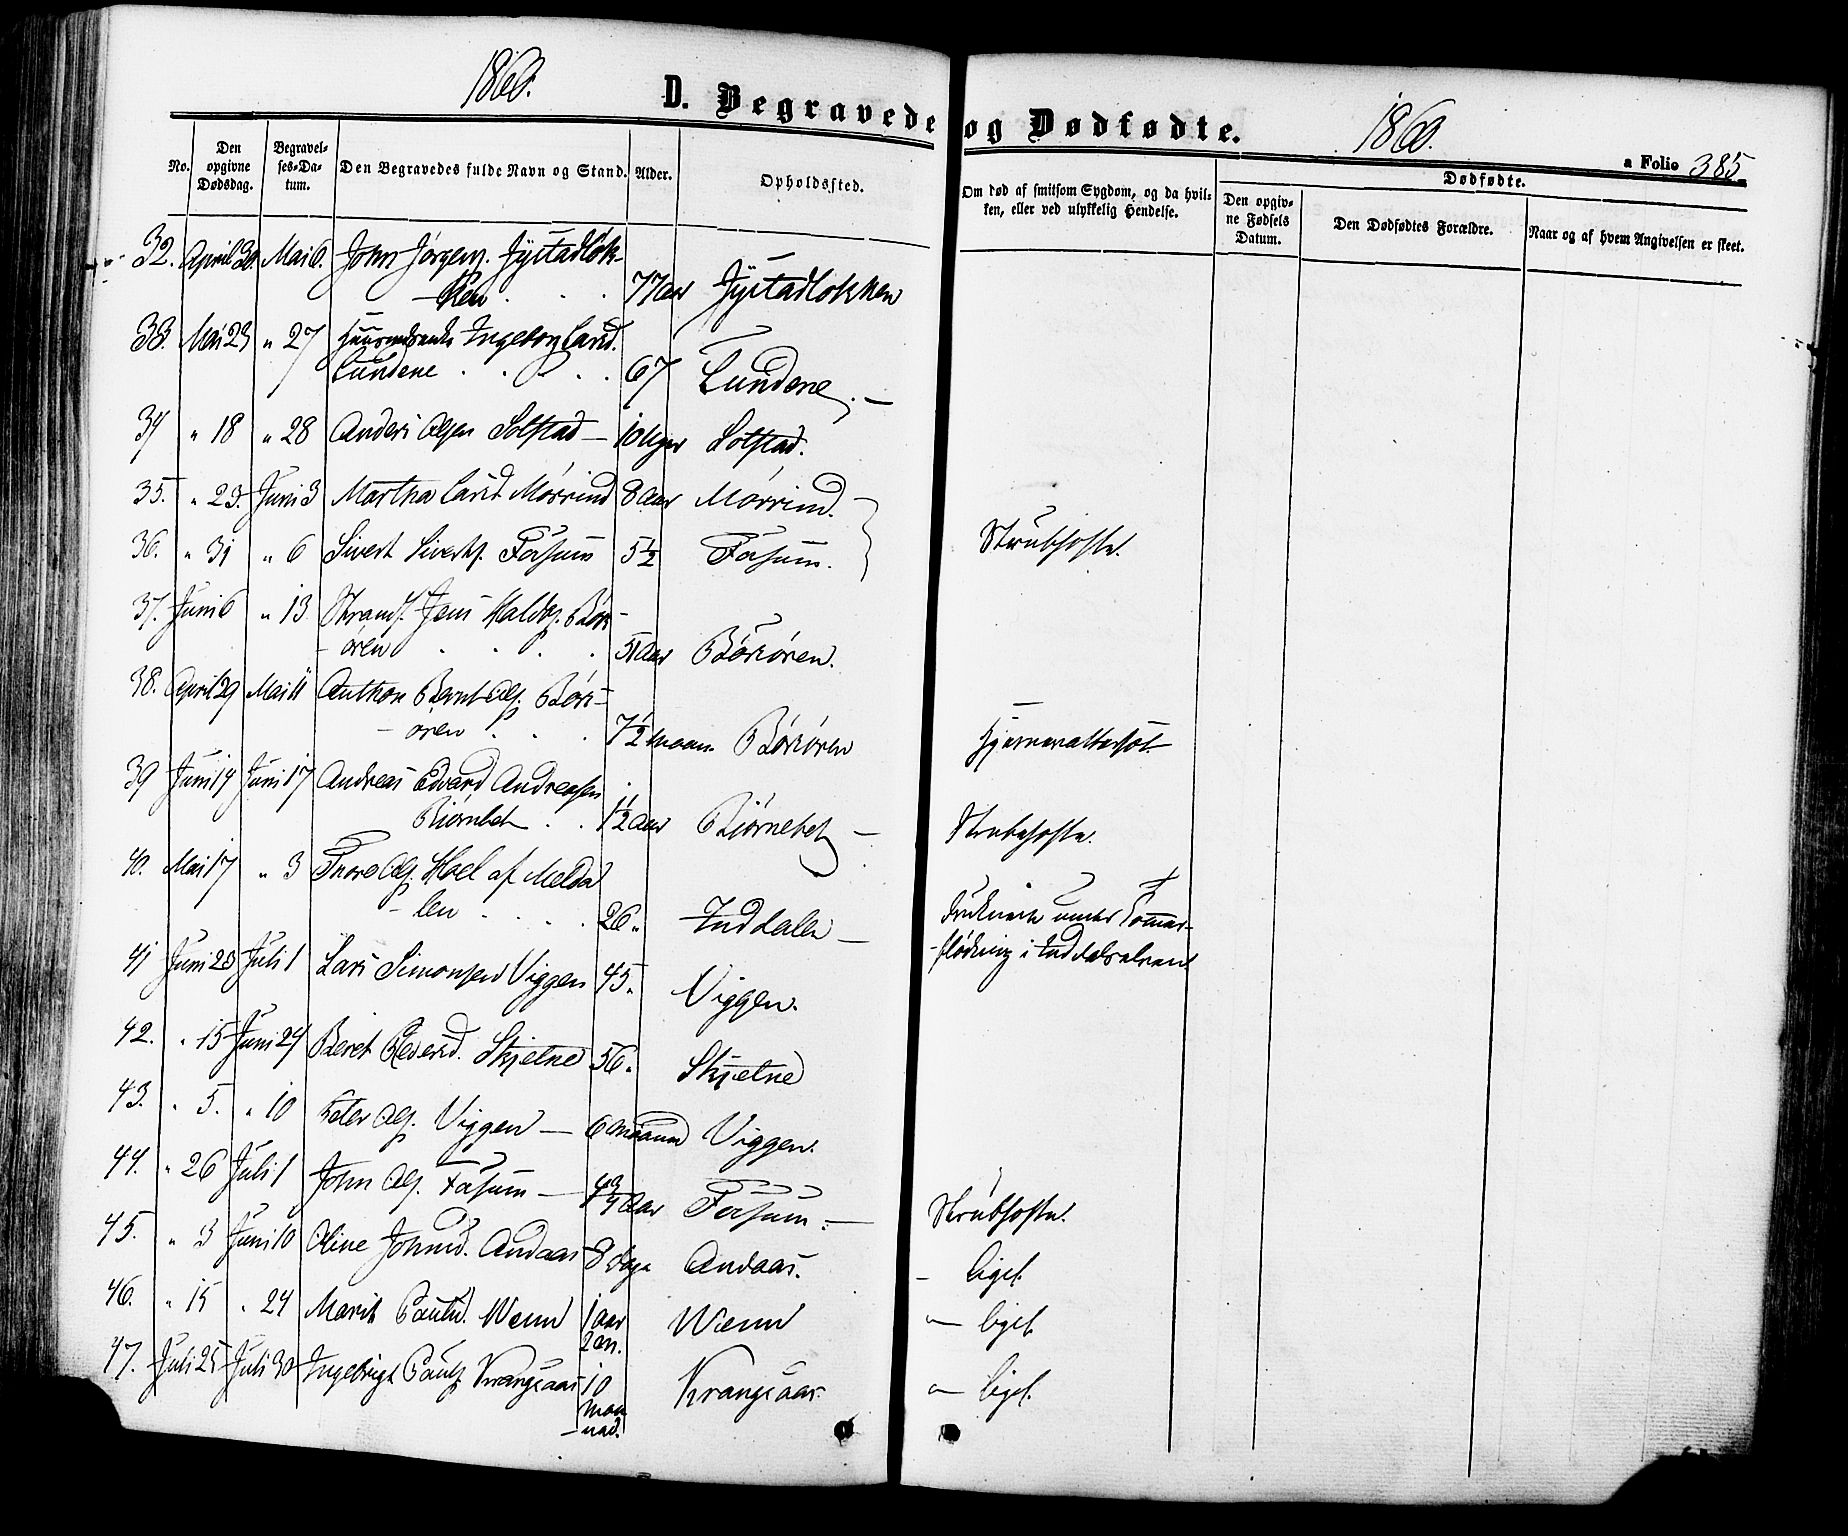 1860.
D. Begravede og Dødfødte.
1860.
a Folio 385
No.
Den opgivne Dødsdag.
Begravel-ses-Da-tum.
Den Begravedes fulde Navn og Stand.
Alder.
Opholdssted.
Om død af smitsom Sygdom, og da hvil-ken, eller ved ulykkelig Hendelse.
Dødfødte.
Den opgiv-ne Fødsels Datum.
Den Dødfødtes Forældre.
Naar og af hvem Angivelsen er skeet.
32. April 30. Mai 6. John Jørgens. Jystadløk-
-ken . . . 77 Aar Jystadløkken
33. Mai 23 " 27 Huusmdsenke Ingeborg Larsd.
Lundene . . . . 67 Lundene. —
34 " 18 " 28 Anders Olsen Solstad — 10 Uger Solstad.
35. " 23. Juni 3 Martha Larsd. Mørrind 8 Aar Mørrind.
36. " 31 " 6 Sivert Siverts. Fosum 5 1/2 Fosum. Strubehoste.
37. Juni 6 " 13 Jens Haldos. Børs-
-øren . . . . 51 Aar Børsøren.
38. April 29 Mai 11 Anthon Bernt Ols. Børs-
-øren . . . 7 1/2 Maan. Børsøren
39 Juni 14 Juni 17 Andreas Edvard Andreasen
Biørnbet . . 1 1/2 Aar Biørnebet — Strubehoste.
40. Mai 17 " 3 Thore Ols. Hoel af Melda
-len . . . . 26 " Inddalen — druknede under Tømmer-
-flødning i Inddalselven
41 Juni 23 Juli 1 Lars Simonsen Viggen 45. " Viggen.
42. " 15 Juni 24 Beret Pedersd. Skjetne 56. " Skjetne
43. " 5. " 10 Peter Ols. Viggen — 6 Maaned Viggen.
44. " 26 Juli 1 John Ols. Fosum — 4 3/4 Aar Fosum. — Strubehoste.
45. " 3 Juni 10 Oline Johnsd. Andaas 8 Dage Andaas. — liget
46. " 15 " 24 Marit Paulsd. Wenn 1 aar
2 m. Wenn — liget
47. Juli 25 Juli 30 Ingebrigt Pauls. Krangsaas 10
Maa
-ned. Krangsaas. — liget.